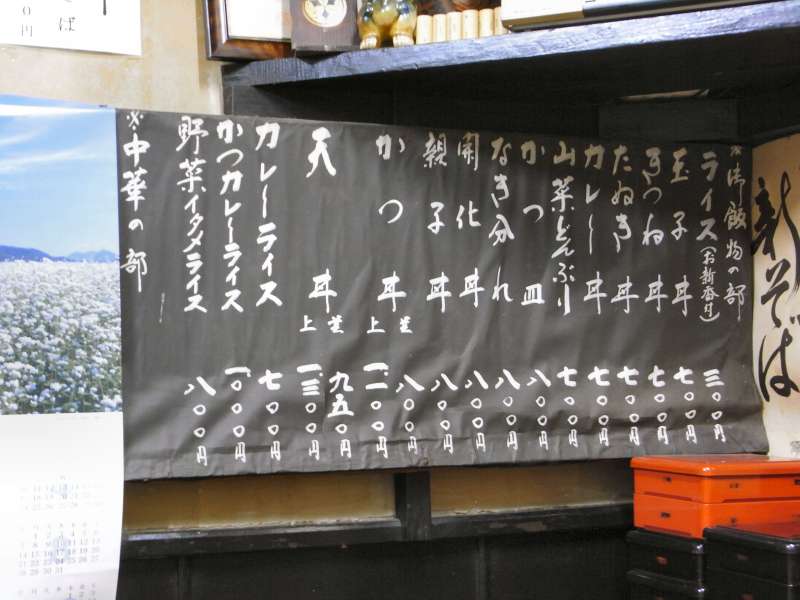 ※御飯物の部
ライス(お新香付) 三〇〇円
玉子丼 七〇〇円
きつね丼 七〇〇円
たぬき丼 七〇〇円
カレー丼 七〇〇円
山菜どんぶり 七〇〇円
かつ皿 八〇〇円
なき分れ 八〇〇円
開化丼 八〇〇円
親子丼 八〇〇円
かつ丼 並 八〇〇円
上 一、一〇〇円
天丼 並 九五〇円
上 一、三〇〇円
カレーライス 七〇〇円
かつカレーライス 一、〇〇〇円
野菜イタメライス 八〇〇円
※中華の部
新そば
そば
円